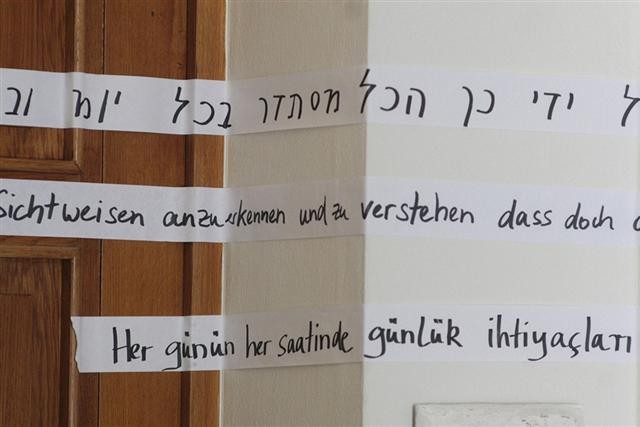 ל ידי כך הכל מסתדר בכל יומ וב
Sichtweisen anzuerkennen und zu verstehen dass doch
Her günün her saatinde günlük ihtiyaçları